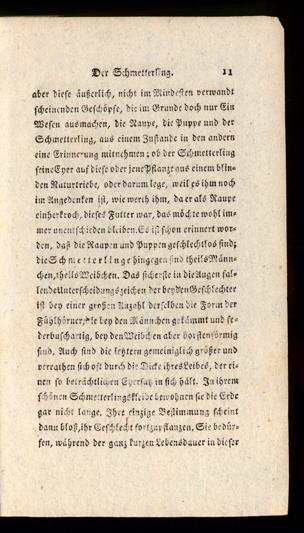 Der Schmetterling. 11
aber diese äußerlich, nicht im Mindesten verwandt
scheinenden Geschöpfe, die im Grunde doch nur Ein
Wesen ausmachen, die Raupe, die Puppe und der
Schmetterling, aus einem Zustande in den andern
eine Erinnerung mitnehmen; ob der Schmetterling
seine Eyer auf diese oder jene Pflanze aus einem blin-
den Naturtriebe, oder darum lege, weil es ihm noch
im Angedenken ist, wie werth ihm, da er als Raupe
einherkroch, dieses Futter war, das möchte wohl im-
mer unentschieden bleiben. Es ist schon erinnert wor-
den, daß die Raupen und Puppen geschlechtlos sind;
die Schmetterlinge hingegen sind theils Männ-
chen, theils Weibchen. Das sicherste in die Augen fal-
lende Unterscheidungszeichen der beyden Geschlechter
ist bey einer großen Anzahl derselben die Form der
Fühlhörner, die bey den Männchen gekämmt und fe-
derbuschartig, bey den Weibchen aber borstenförmig
sind. Auch sind die letztern gemeiniglich größer und
verrathen sich oft durch die Dicke ihres Leibes, der ei-
nen so beträchtlichen Eyersatz in sich hält. In ihrem
schönen Schmetterlingskleide bewohnen sie die Erde
gar nicht lange. Ihre einzige Bestimmung scheint
dann bloß, ihr Geschlecht fortzupflanzen. Sie bedür-
fen, während der ganz kurzen Lebensdauer in dieser